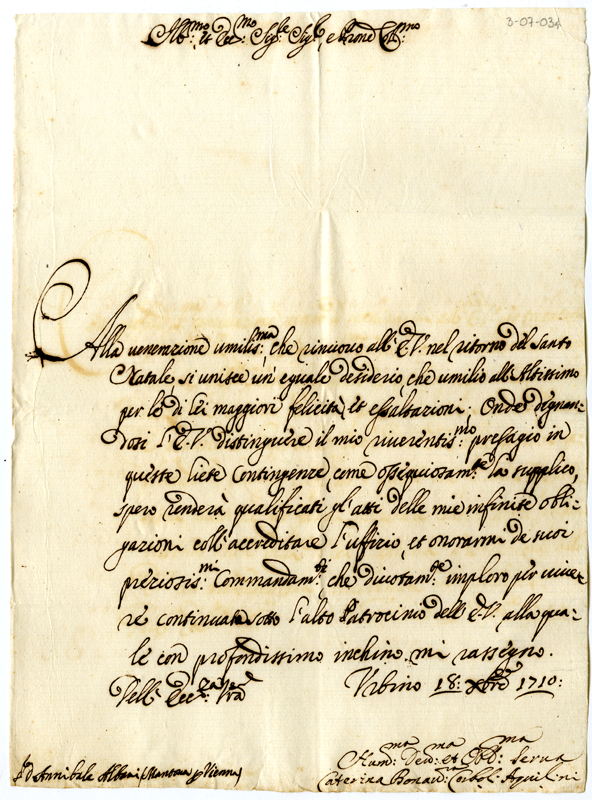 3-07-034
Ill:mo et Ecc:mo Sig:re Sig:r e Prone Coll:mo
Alla venerazione umilis:ma, che rinuovo all'E.V. nel ritorno del Santo
Natale, si unisce un'eguale desiderio, che umilio all'Altissimo
per le di Lei maggiori felicità, et essaltazioni; Onde degnan-
dosi l'E.V. distinguere il mio riverentis:mo presagio in
queste liete Contingenze, come ossequiosam:te la supplico,
spero renderà qualificati gl'atti delle mie infinite obli-
gazioni coll'accreditare l'uffizio, et onorarmi de suoi
preziosis:mi Commandam:ti, che divotam:te imploro per vive-
re continuata sotto l'alto Patrocinio dell'E.V. alla qua-
le con profondissimo inchino mi rassegno.
Dell'Ecc:za V:ra
Urbino 18: Xbre 1710:
Hum:ma Dev:ma et Obl:ma Serva
D Annibale Albani (Mantova p Vienna)
Caterina Bonav: Aquilini